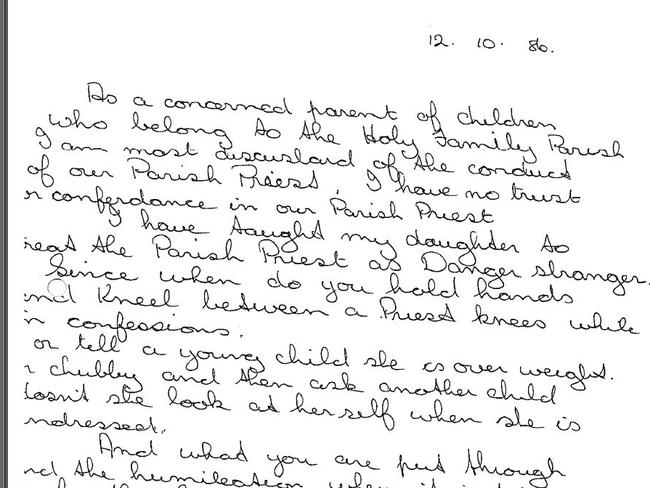 12. 10. 86.
As a concerned parent of children
who belong to the Holy Family Parish
I am most discuslard of the conduct
of our Parish Priest, I have no trust
r conferdance in our Parish Priest
I have taught my daughter to
reat the Parish Priest as Danger stranger.
Since when do you hold hands
nd Kneel between a Priest knees while
n confessions.
or tell a young child she is over weight.
r chubby and then ask another child
dosn't she look at her self when she is
ndressed.
And what you are put through
nd the humileation when it